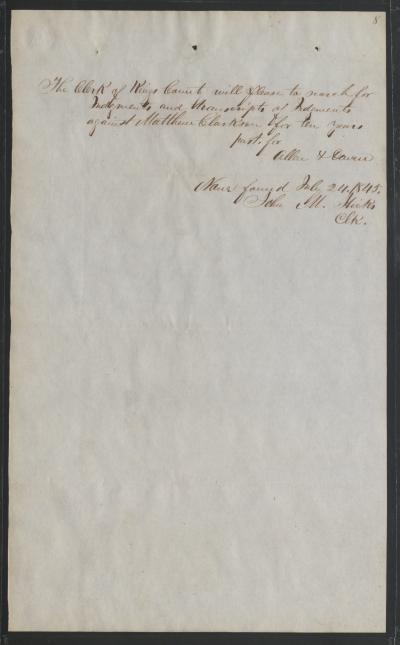 8
The Clerk of Kings County will please to search for
Judgments and transcripts of Judgments
against Matthew Clarkson for ten years
past, for
Allen &
None found July 24. 1845.
John M. Hicks
Clk.